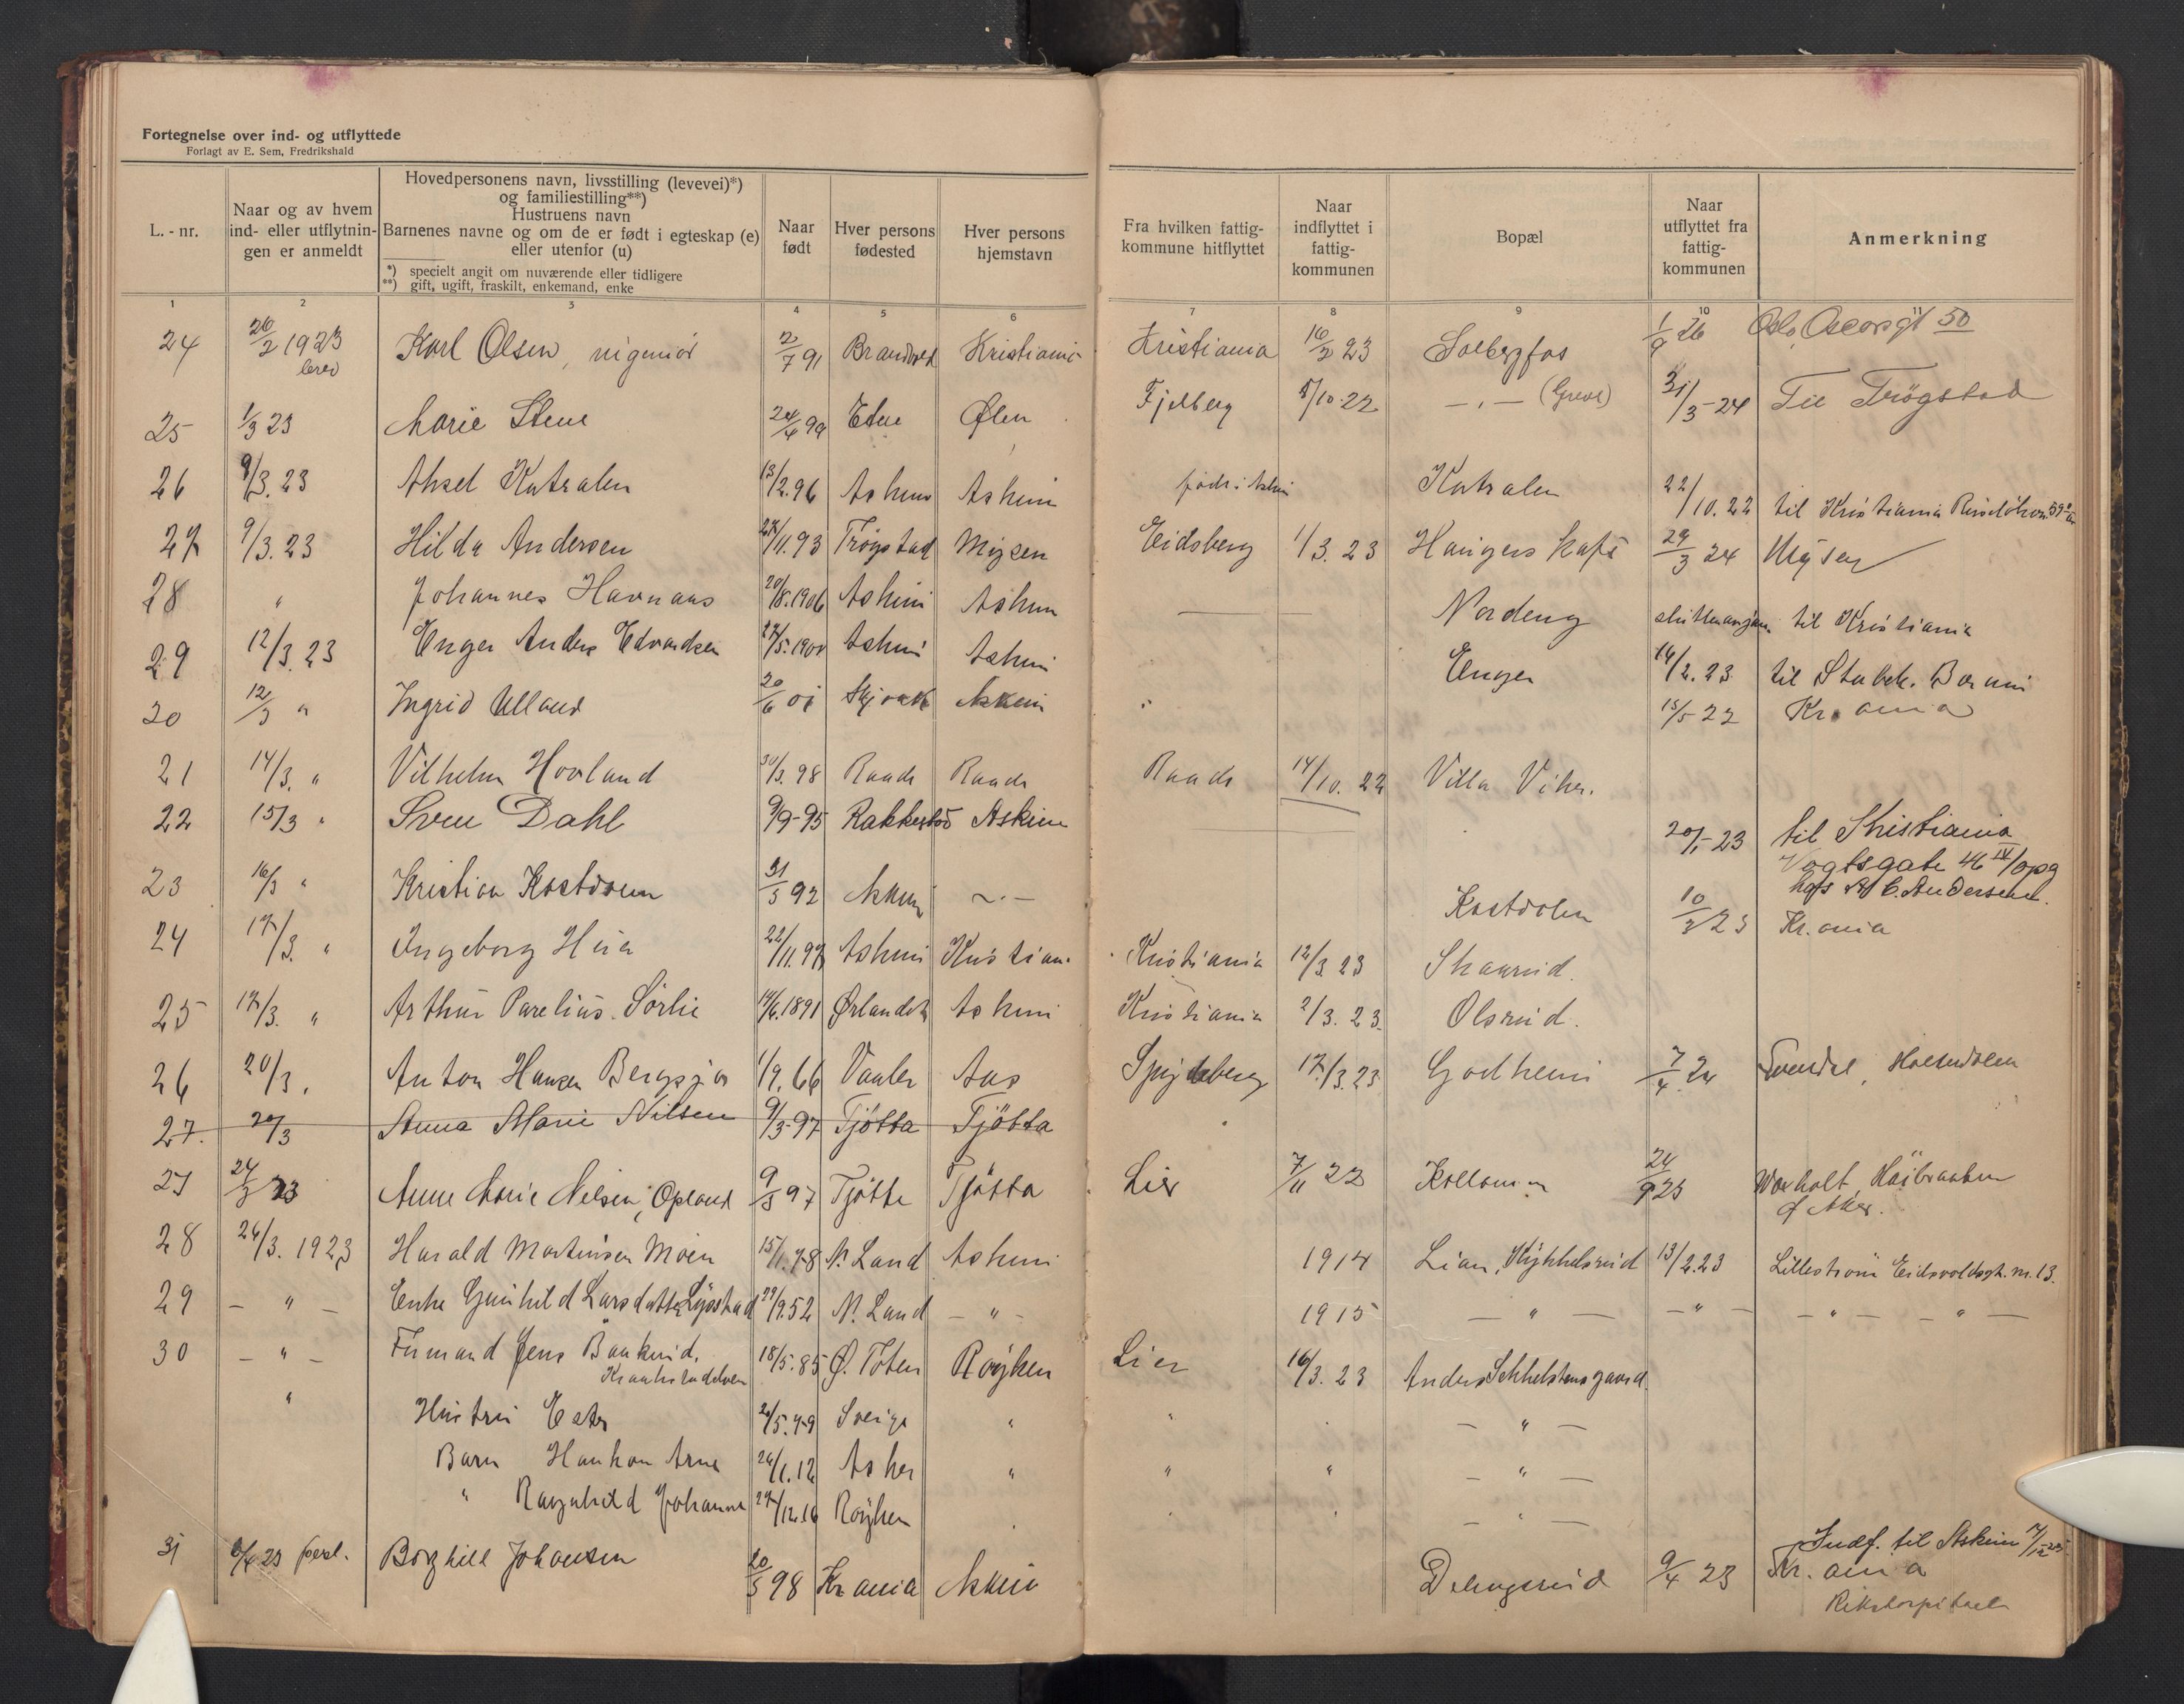 Fortegnelse over ind- og utflyttede
Forlagt av E. Sem, Fredrikshald
L. - nr.
Naar og av hvem ind- eller utflytnin- gen er anmeldt
Hovedpersonens navn, livsstilling (levevei)*) og familiestilling**)
Hustruens navn
Barnenes navne og om de er født i egteskap (e) eller utenfor (u)
*) specielt angit om nuværende eller tidligere
**) gift, ugift, fraskilt, enkemand, enke
Naar født
Hver persons fødested
Hver persons hjemstavn
Fra hvilken fattig- kommune hitflyttet
Naar indflyttet i fattig- kommunen
Bopæl
Naar utflyttet fra fattig- kommunen
Anmerkning
1 2 3 4 5 6 7 8 9 10
24 26/2 1923 brev Karl Olsen, 2/7 91 Kristiania Kristiania 16/2 23 Solbergfos 1/9 26 Oslo, Oscarsgt 50
25 1/3 23 Marie Stene 24/4 99 Etne Ølen Fjelberg 5/10-22 — " — 31/3-24 Til Trøgstad
26 9/3. 23 Aksel Katralen 13/2.96 Askim Askim født i Askim Katralen 22/10.22 til Kristiania
27 9/3. 23 Hilda Andersen 27/11.93 Trøgstad Mysen Eidsberg 1/3. 23 Haugers Kafé 29/3 24 Mysen
28 " Johannes Havnaas 20/8.1906 Askim Askim — Nordeng til Kristiania
29 12/3. 23 Enger Anders Edvardsen 27/5.1900 Askim Askim Enger 14/2. 23 til Stabek. Bærum
20 12/3 " Ingrid Ulland 20/6 01 Askim " 15/5-22 Kr.ania
21 14/3. " Vilhelm Hovland 30/3. 98 Raade Raade Raade 14/10. 22 Villa Viker.
22 15/3 " Sven Dahl 9/9-95 Rakkestad Askim 20/1-23 til Kristiania
Vogtsgate 46 IV/opg
hos C. Andersen.
23 16/3 " Kristian Kastdalen 31/5 92 Askim — " — Kastdalen 10/3 23 Kr.ania
24 17/3. " Ingeborg Hua 22/11.97 Askim Kristian. Kristiania 12/3 23 Skaarud.
25 17/3. " Arthur Parelius Sørlie 14/6.1891 Ørlandet Askim Kristiania 2/3. 23. Olsrud.
26 20/3. Anton Hansen Bergsjø 1/9. 66 Vaaler Aas Spydeberg 17/3.23 Godheim 7/4 24
27. 20/3 Anna Marie Nilsen 9/3-97 Tjøtta Tjøtta
27 24/3 23 Anne Marie Nilsen, Opland 9/3 97 Tjøtta Tjøtta Lier 7/11 22 24/9 23 Høibraaten
28 24/3. 1923 Harald Martinsen Moen 15/1.78 N. Land Askim 1914 Lian, Kykkelsrud 13/2.23 Lillestrøm Eidsvoldsgt. nr. 13.
29 — " — Enke Gunhild Larsdatter Lysstad 29/9.52 N. Land — " — 1915 — " — — " — — " — — " —
30 — " — Furmand Jens Baakrud, 18/5.85 Ø. Toten Røyken Lier 16/3. 23
" Hustru Ester 26/5.79 Sverige " " — " —
Barn Haakon Arne 26/1.12 Asker " " " — " —
" Ragnhild Johanne 29/12.16 Røyken — " —
31 Borghild Johansen 20/5 98 Kr.ania Askim Delingsrud 9/4 23 Indf. til Askim
Kr.ania
Rikshospitalet